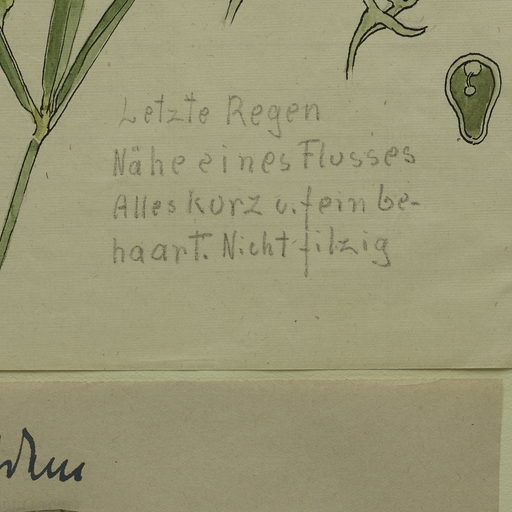 Letzte Regen
Nähe eines Flusses
Alles kurz u. fein be-
haart. Nicht filzig